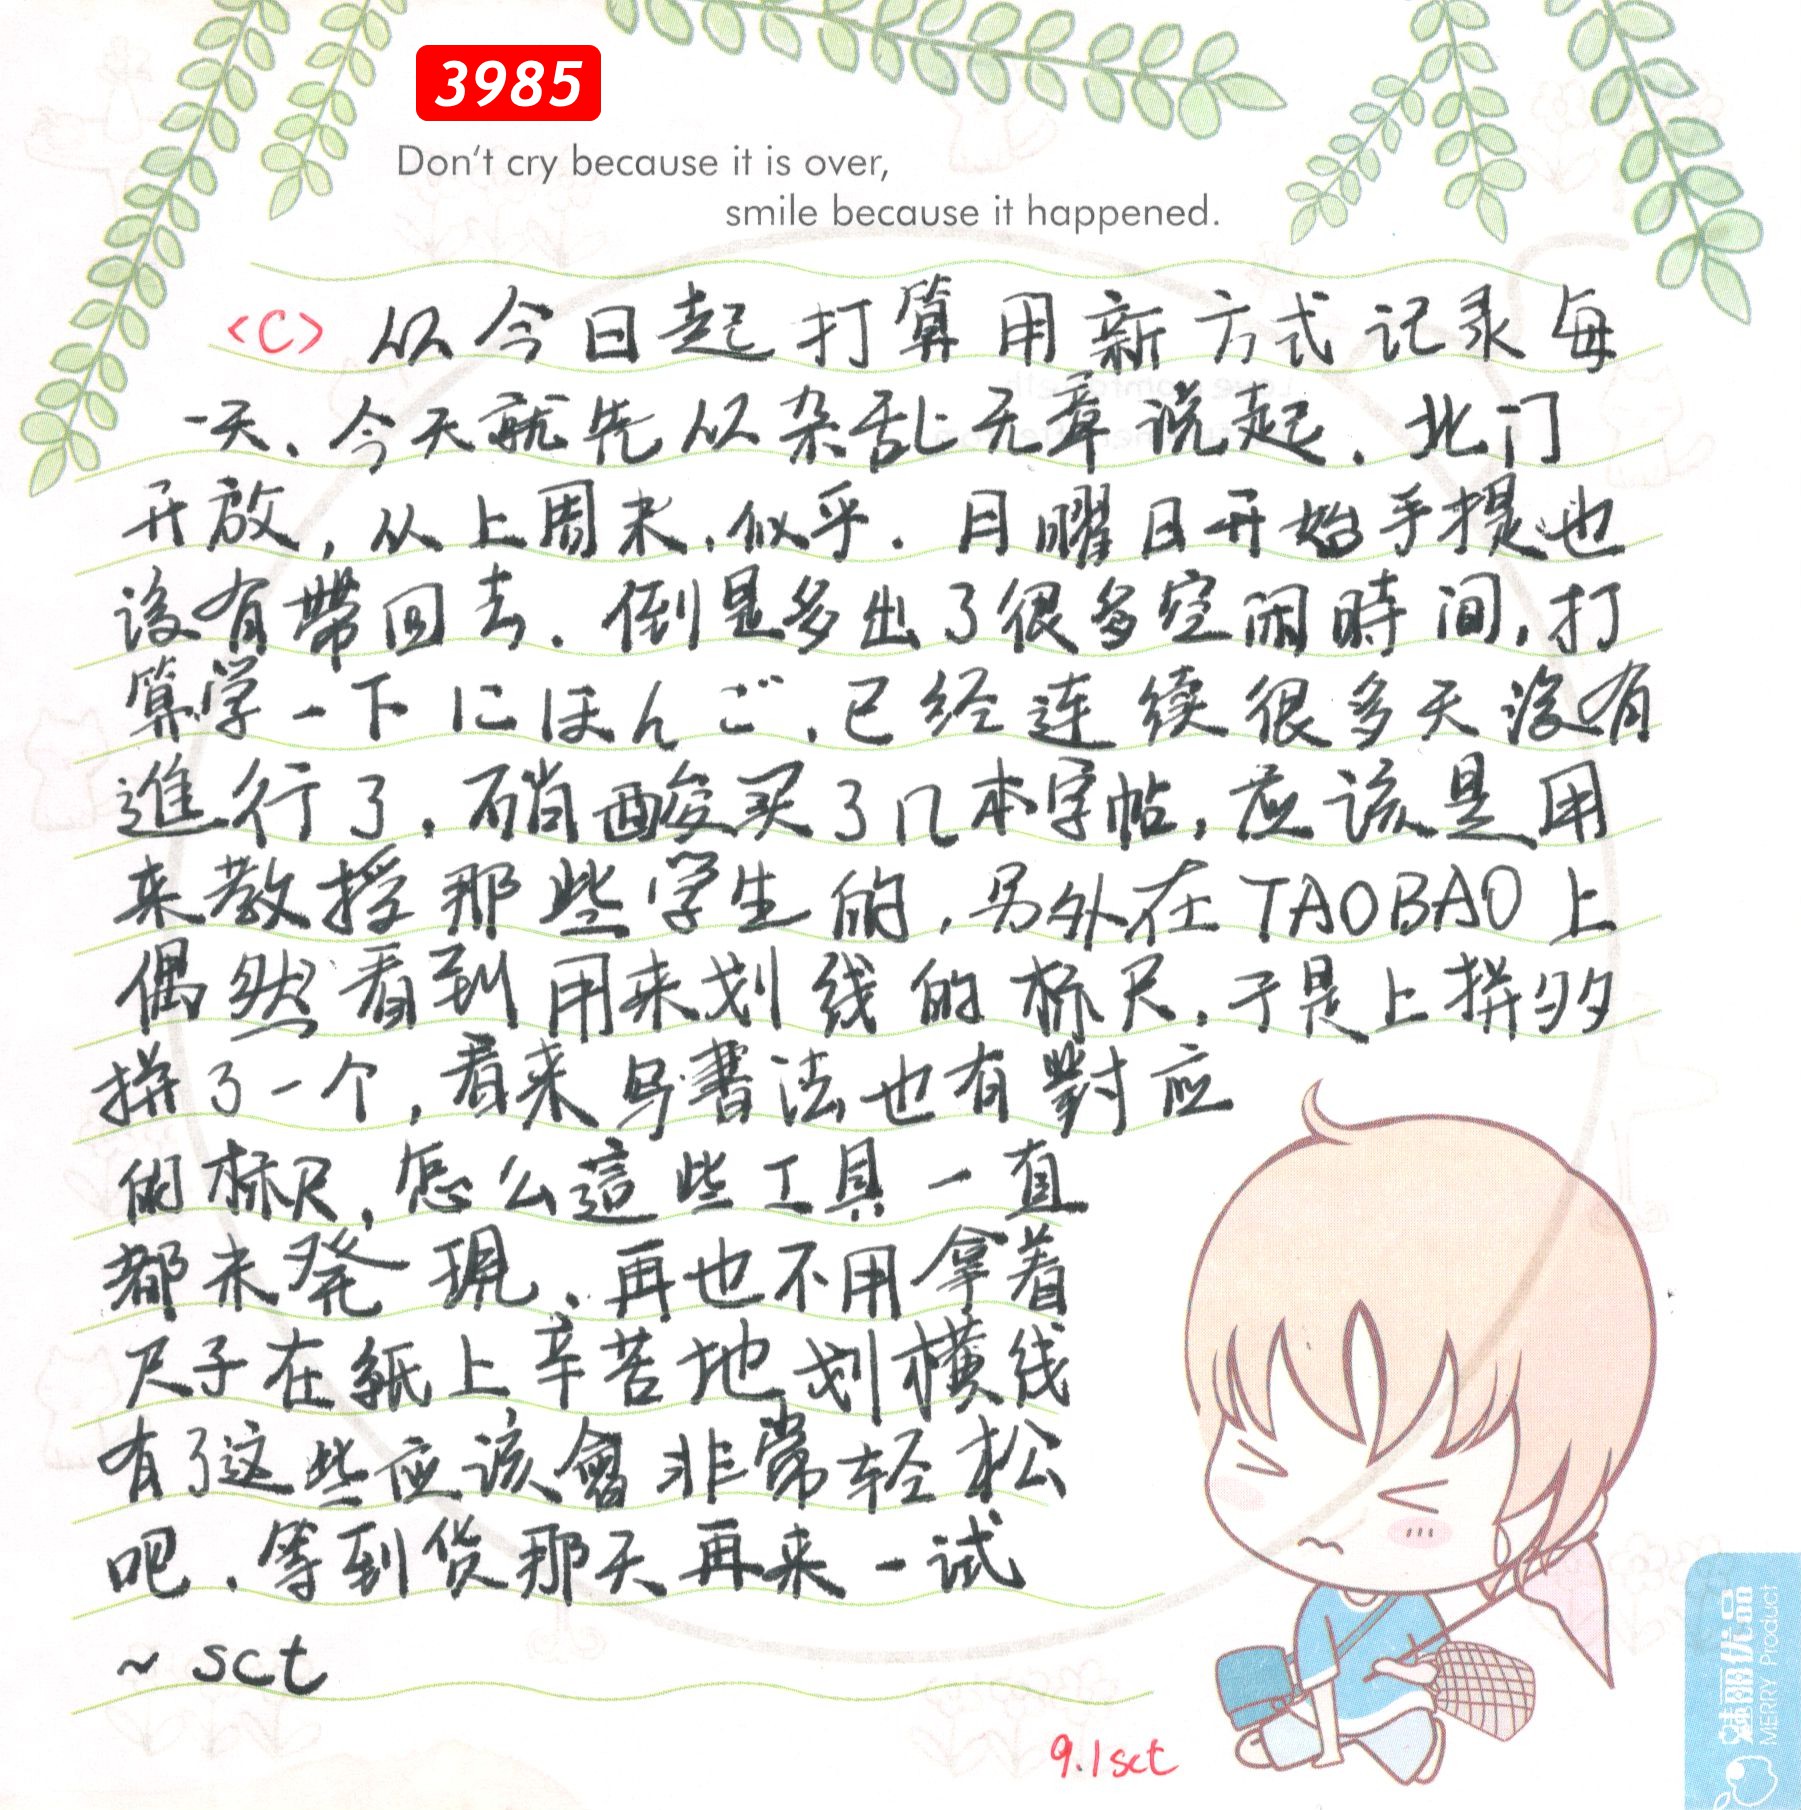 3985
Don't cry because it is over,
smile because it happened.
<C> 从今日起打算用新方式记录每
一天、今天就先从杂乱无章说起.北门
开放,从上周末,似乎.月曜日开始手提也
没有帶回去.倒是多出了很多空闲時间,打
算学一下にほんご,已经连续很多天没有
進行了.硝酸买了几本字帖,应该是用
来教授那些学生的,另外在TAOBAO上
偶然看到用来划线的标尺,于是上拼多
拼了一个,看来写書法也有對应
的标尺,怎么這些工具一直
都未発現、再也不用拿着
尺子在紙上辛苦地划横线
有了这些应该會非常轻松
吧.等到货那天再来一试
~ sct
9.1sct
魅丽优品
MERRY Product